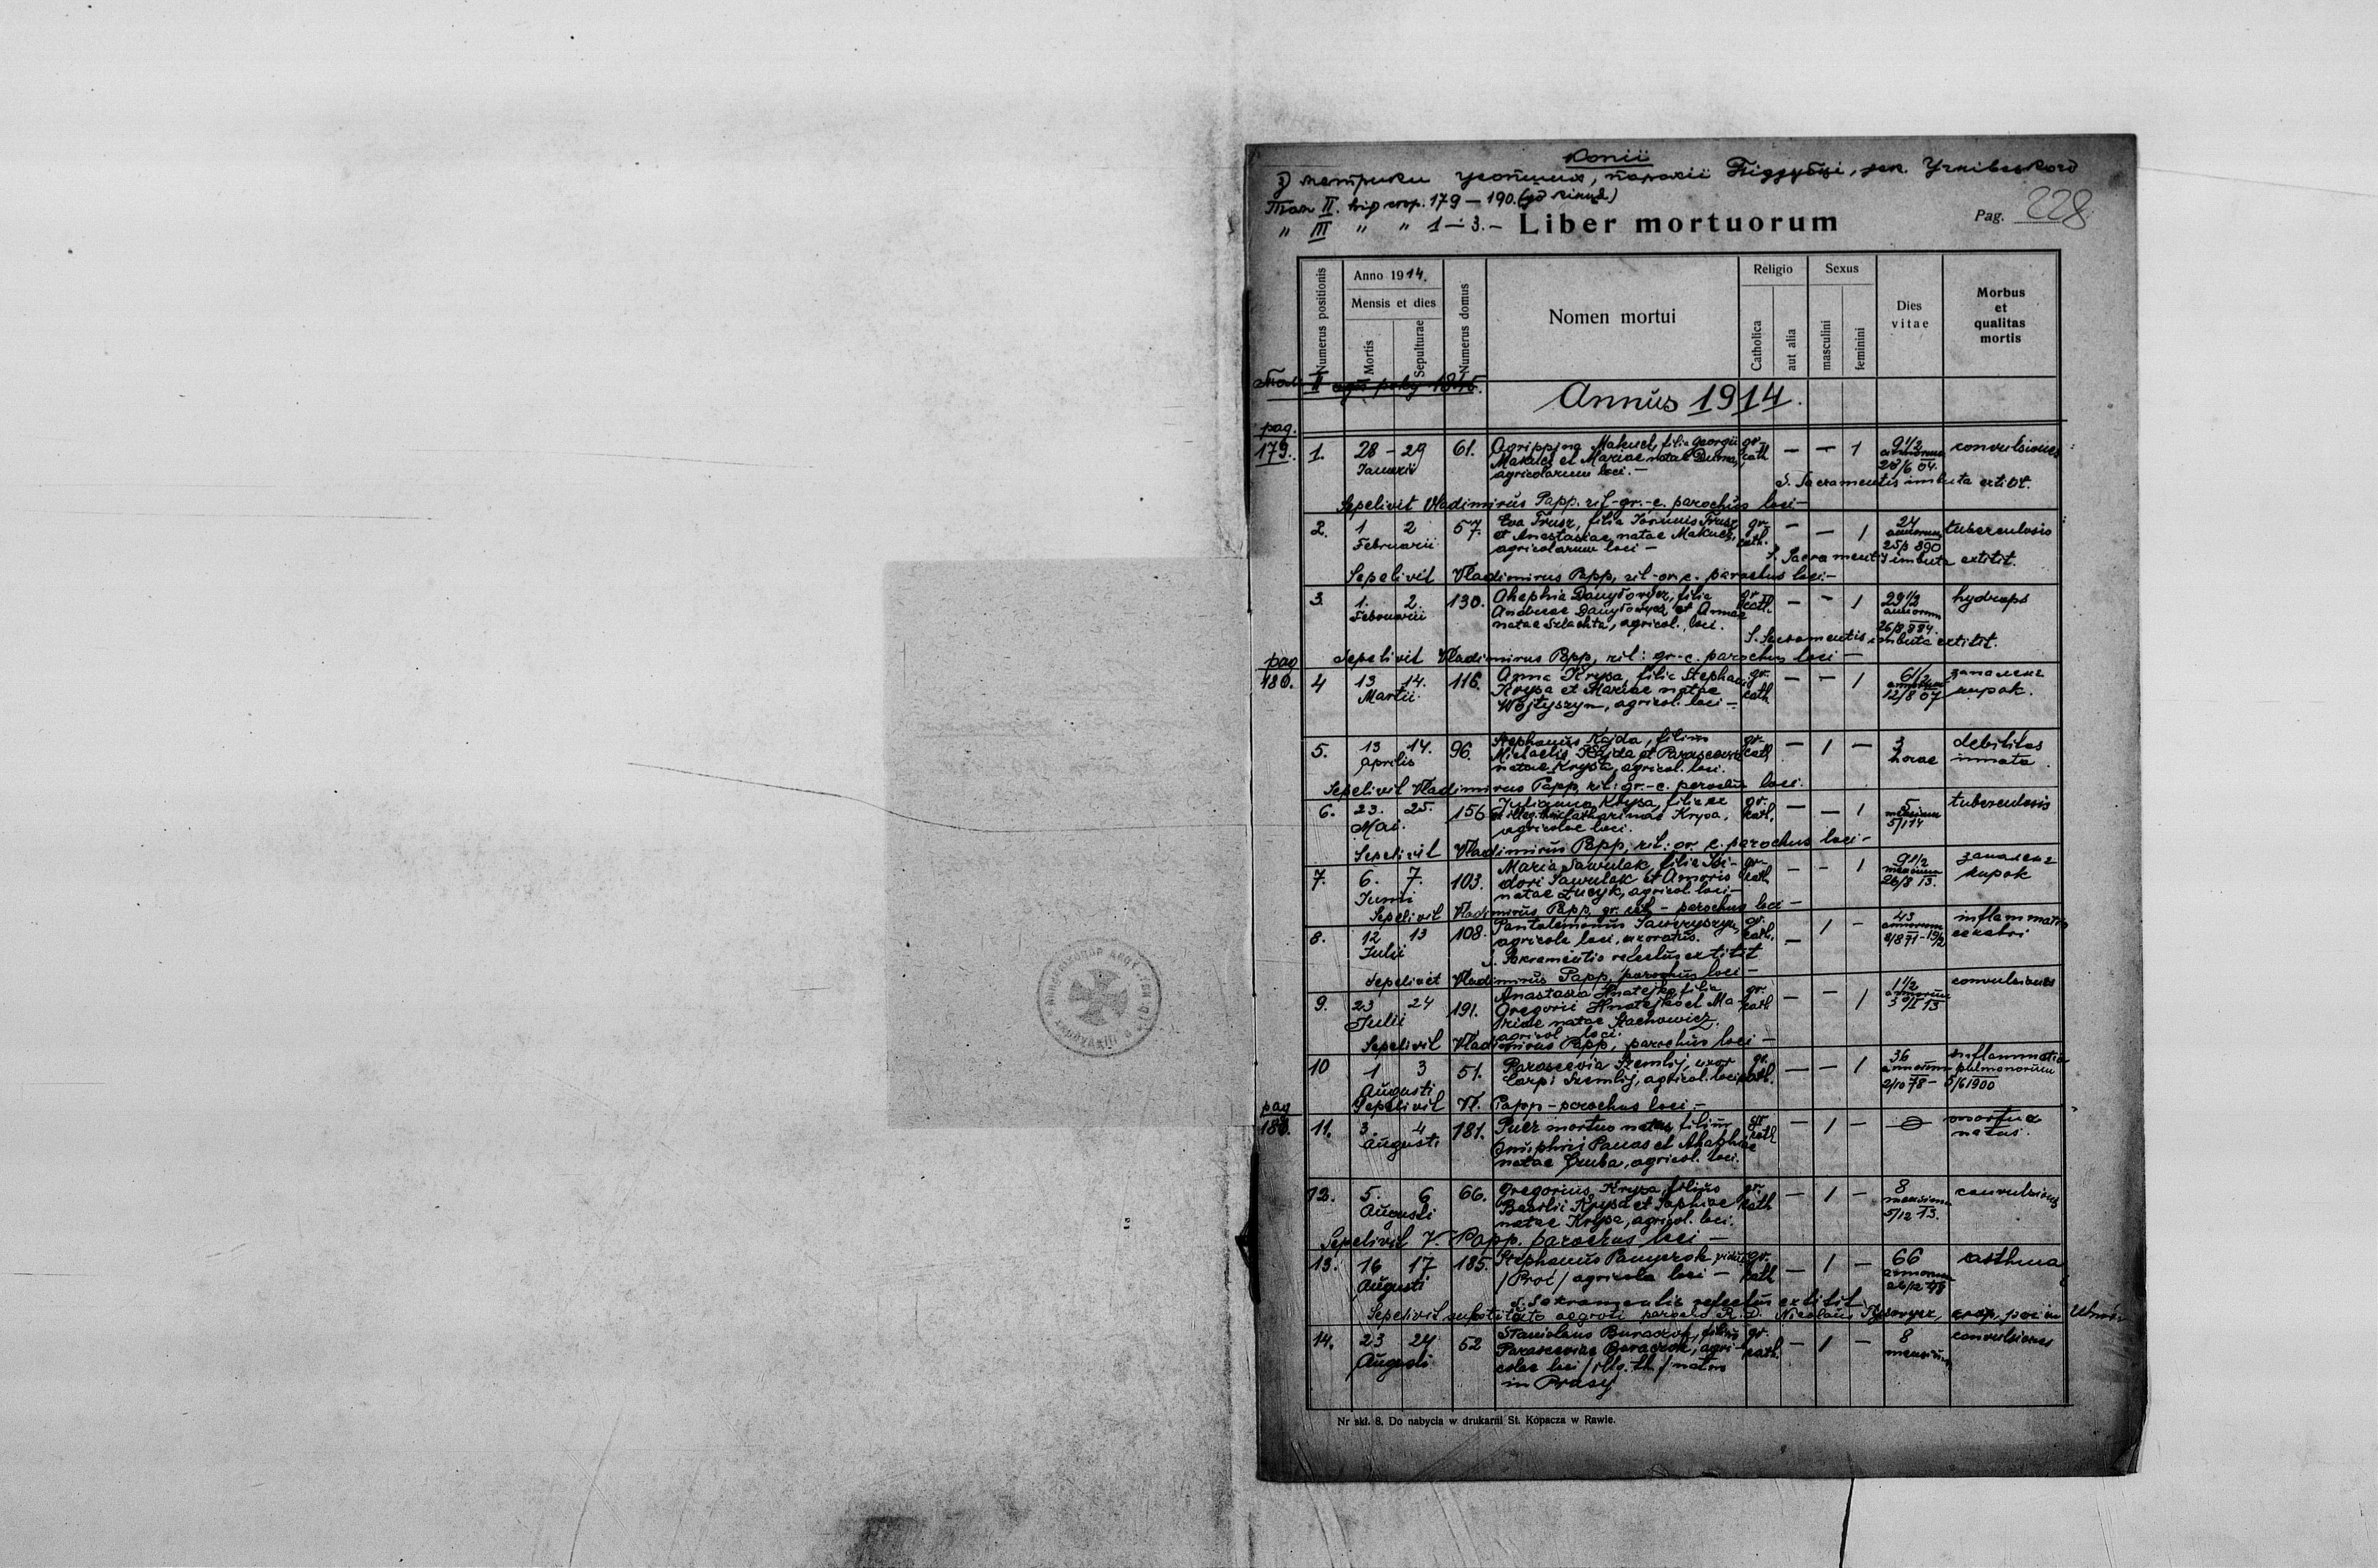 Копії
з метрики усопших, парохії Піддубці, дек. Угнівського
Том II. від стор. 179 – 190. (до кінця)
" III " " 1 – 3. –
Liber mortuorum
Pag. 228
Numerus positionis
Anno 1914.
Mensis et dies
Mortis
Sepulturae
Numerus domus
Nomen mortui
Religio
Catholica
aut alia
Sexus
masculini
feminini
Dies
vitae
Morbus
et
qualitas
mortis
Annus 1914.
pag.
179.
1. 28 – 29 61. Agrippina Makuch, filia Georgii gr. – – 1 9 1/2 convulsiones
Januarii Makuch et Mariae natae Durna, kath. annorum
agricolarum loci. – 28/6 04.
S. Sacramentis imbuta extitit.
Sepelivit Vladimirus Papp. rit. gr.-c. parochus loci –
2. 1 2 57. Eva Trusz, filia Joannis Trusz gr. – – 1 24 tuberculosis
Februarii et Anastasiae natae Makuch, kath. annorum
agricolarum loci – 890
S. Sacramentis imbuta extitit.
Sepelivit Vladimirus Papp, rit. gr. c. parochus loci. –
3. 1. 2. 130. filia gr. – – 1 29 1/2 hydrops
Februarii Andreae et Annae kath. annorum
natae Szlachta, agricol. loci. 26/8 884.
S. Sacramentis imbuta extitit.
Sepelivit Vladimirus Papp, rit: gr.-c. parochus loci –
pag
180.
4 13 14. 116. Anna Krysa, filia Stephani gr. – – 1 6 1/2 запалене
Martii Krysa et Mariae natae kath annorum нирок.
Wojtyszyn, agricol. loci – 12/8 07
5. 13 14. 96. Stephanus Kojda, filius gr. – 1 – 3 debilitas
Aprilis Michaelis Kojda et Parasceviae kath horae innata
natae Krysa, agricol. loci.
Sepelivit Vladimirus Papp, rit: gr.-c. parochus loci.
6. 23. 25. 156 Julianna Krysa, filia gr. – – 1 5 tuberculosis
Mai. Catharinae Krysa, kath. mensium
agricolae loci. 5/1 14
Sepelivit Vladimirus Papp, rit: gr. c. parochus loci –
7. 6. 7. 103. Maria Sawulak, filia Isi- gr. – – 1 9 1/2 запалене
Junii dori Sawulak et kath mensium нирок
natae Żucyk, agricol. loci – 26/8 13.
Sepelivit Vladimirus Papp, gr. rit – parochus loci –
8. 12 13 108. Pantalemonus gr. – 1 – 43 inflammatio
Julii agricola loci, uxoratus. kath. annorum cerebri
S. Sakramentis refectus extitit
Sepelivit Vladimirus Papp, parochus loci –
9. 23 24 191. Anastasia Hnatejko filia gr. – – 1 1 1/2 convulsiones
Julii Gregorii Hnatejko et Ma- kath annorum
riae natae Stachowicz. 13
agricol. loci.
Sepelivit Vladimirus Papp, parochus loci –
10 1 3 51. Parascevia Szemlij, uxor gr. – – 1 36 inflammatio
Augusti Carpi Szemlij, agricol. loci kath. annorum pulmonorum
2/10 78 – 5/6 1900
Sepelivit Vl. Papp – parochus loci, –
pag
11. 3. 4 181. Puer mortuo natus, filius gr. – 1 – mortuo
Augusti Onuphrii Panas et Ahaphiae kath natus.
natae Gruba, agricol. loci.
12. 5. 6 66. Gregorius Krysa, filius gr. – 1 – 8 convulsiones
Augusti Basilii Krysa et Sophiae kath mensium
natae Krysa, agricol. loci. 5/12 13.
Sepelivit V. Papp. parochus loci –
13. 16 17 185. Stephanus gr. – 1 – 66 asthma
Augusti agricola loci – kath annorum
S. Sakramentis refectus extitit
Sepelivit substituto aegroti parocho R. D. Nicolaus
14. 23 24 52 Stanislaus Buraczok, filius gr. – 1 – 8 convulsiones
Augusti Parasceviae Buraczok, agri- kath. mensium
colae loci /illg. th./ natus
in Prusy
Nr skł. 8. Do nabycia w drukarni St. Kopacza w Rawie.